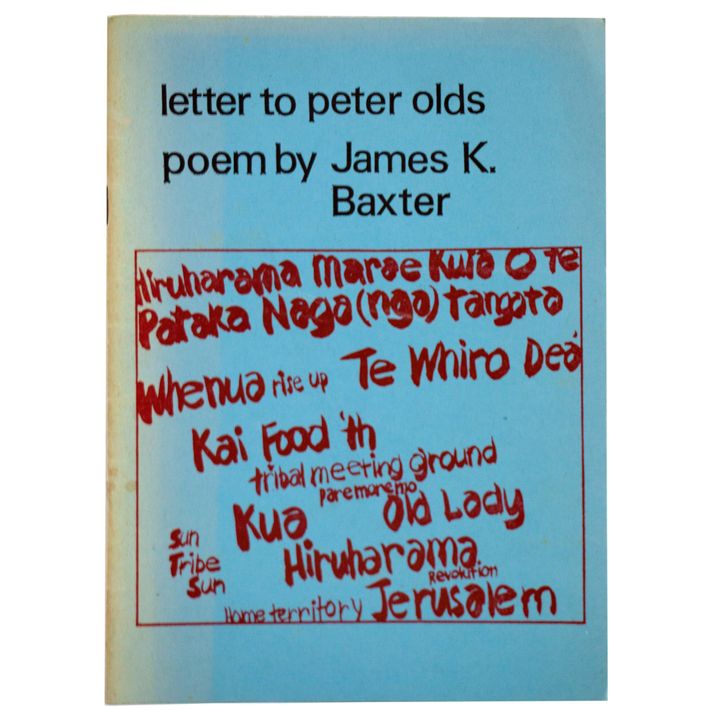 letter to peter olds
poem by James K.
Baxter
Hiruharama Marae Kuia O Te
Pataka Naga (nga) tangata
Whenua rise up Te Whiro Dea
Kai Food 'th
tribal meeting ground
paremoremo
Kua Old Lady
Sun
Tribe Hiruharama
Sun Revolution
Home territory Jerusalem